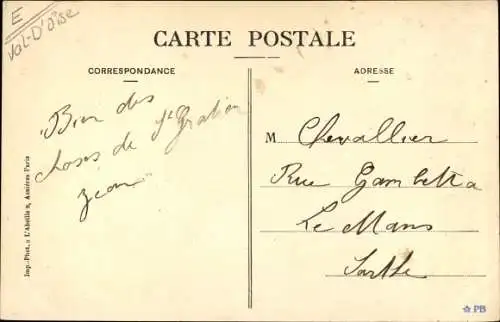 E
Val-D'Oise
CARTE POSTALE
CORRESPONDANCE
ADRESSE
"Bien des
choses de St Gratien
Jean"
M Chevallier
Rue Gambetta
Le Mans
Sarthe
Imp.-Phot. « L'Abeille », Asnières Paris
☆ PB